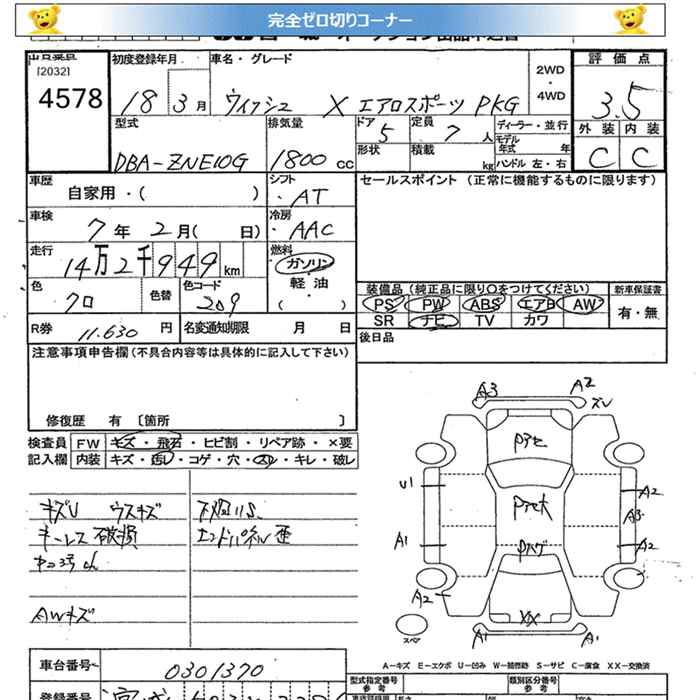 完全ゼロ切りコーナー
出品番号 [2032] 4578
初度登録年月 18 3月
車名・グレード ウィッシュ X エアロスポーツ PKG
2WD・4WD
評価点 3.5
外装 C 内装 C
型式 DBA-ZNE10G
排気量 1800 cc
ドア 5 定員 7 人
形状 積載 kg
ディーラー・並行
モデル年式 年
ハンドル 左・右
車歴 自家用・( )
シフト ・AT
セールスポイント (正常に機能するものに限ります)
車検 7年 2月( 日)
冷房 ・AAC
走行 14万2千949 km
燃料 ガソリン 軽油 ・( )
色 クロ 色替 色コード 209
装備品(純正品に限り○をつけてください)
PS PW ABS エアB AW
SR ナビ TV カワ
新車保証書 有・無
R券 11.630 円 名変通知期限 月 日
後日品
注意事項申告欄(不具合内容等は具体的に記入して下さい)
修復歴 有 〔箇所 〕
検査員記入欄 FW キズ・飛石・ヒビ割・リペア跡・×要
内装 キズ・汚レ・コゲ・穴・スレ・キレ・破レ
キズU ウスキズ
キーレス破損
AWキズ
エンドパネル歪
A3 A2
ズレ
U1 A2
A3
A1 A2
A2
XX
A1 A1
スペア
A-キズ E-エクボ U-凹み W-補修跡 S-サビ C-腐食 XX-交換済
車台番号 0301370
型式指定番号 参考
類別区分番号 参考
登録番号